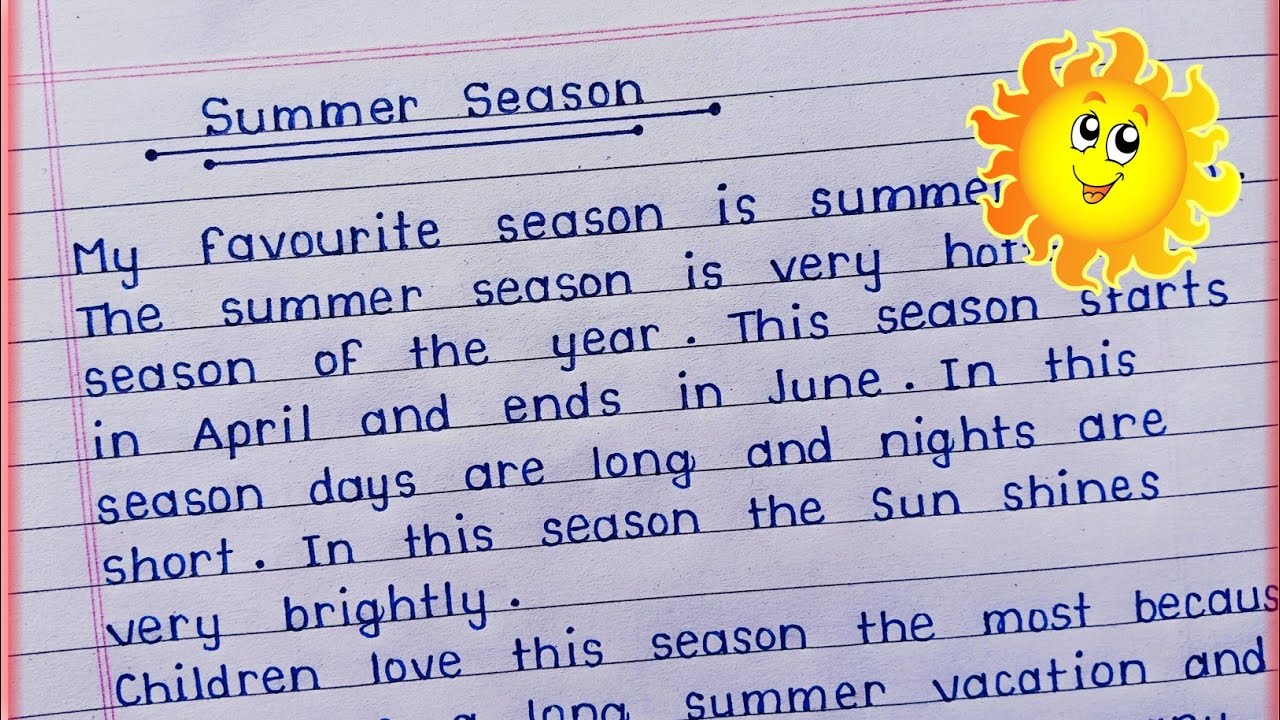 Summer Season
My favourite season is summer
The summer season is very hot
season of the year. This season starts
in April and ends in June. In this
season days are long and nights are
short. In this season the Sun shines
very brightly.
Children love this season the most becaus
long summer vacation and